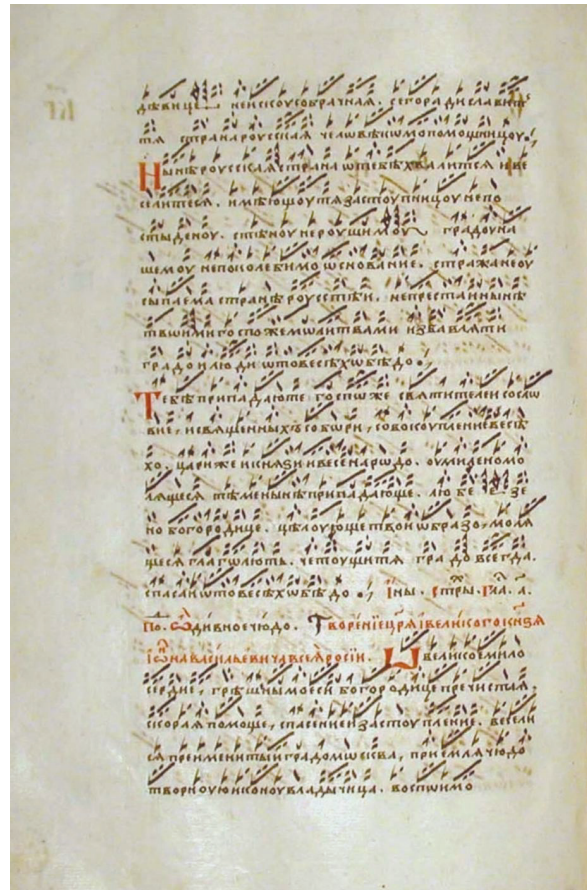 дѣвице неискоусобрачная . сегоради славит
тя странароусская человѣкѡмо помощницоу .,
Нынѣ роусская страна ѡ тебѣ хвалится и ве
селитеся . имѣющоу тя застоупницоу непо
стыденоу . стѣноу нероушимоу градоу на
шемоу неполебимо ѡснование . стража неоу
сыпаема странѣ роусстѣи . непрестани нынѣ
твѡими госпоже мѡлитвами избавляти
градо и люди ѡто весѣхо бѣдо .,
Тебѣ припадаюте госпѡже святителеи сослѡ
вие , и священныхъ собѡри , совокоупление весѣ
хо . цари же и князи и весе нарѡдо . оумилено мо
лящеся тѣмене нынѣ припадающе . любезе
но богородице . цѣлоующе твои ѡбразо , моля
щеся глагѡлюте . четоущитя градо всегда .
спасаи ѡто весѣхо бѣдо ., Ины . стры . гла . а .
По . Ѡ дивное чюдо . Творение цря і великого кнзя
Іѡанна василевича всея росіи . Ш великое мило
сердие , грѣшнымо еси богородице пречистая .
скорая помоще , спасение и застоупление . весели
ся преименитыи градо мѡсква , приемля чюдо
творноую иконоу владычица . воспѡимо